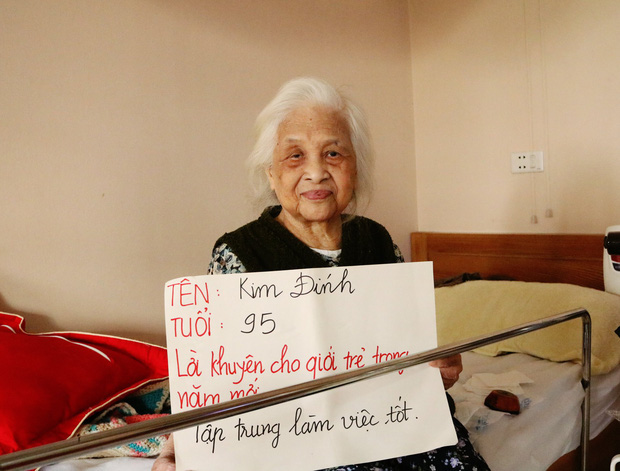 TÊN : Kim Đính
TUỔI : 95
Lời khuyên cho giới trẻ trong
năm mới
Tập trung làm việc tốt.